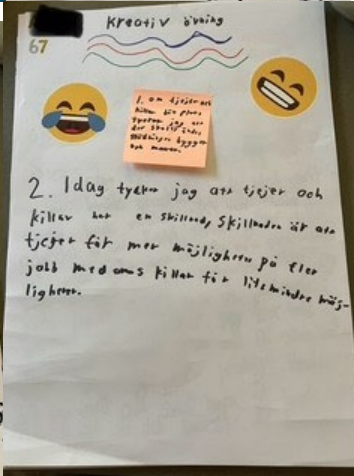 Kreativ övning
67
1. om tjejer och
killar
tycker jag att
och
2. Idag tycker jag att tjejer och
killar har en skillnad, skillnaden är att
tjejer får mer möjligheter på fler
jobb medans killar får lite mindre möj-
ligheter.